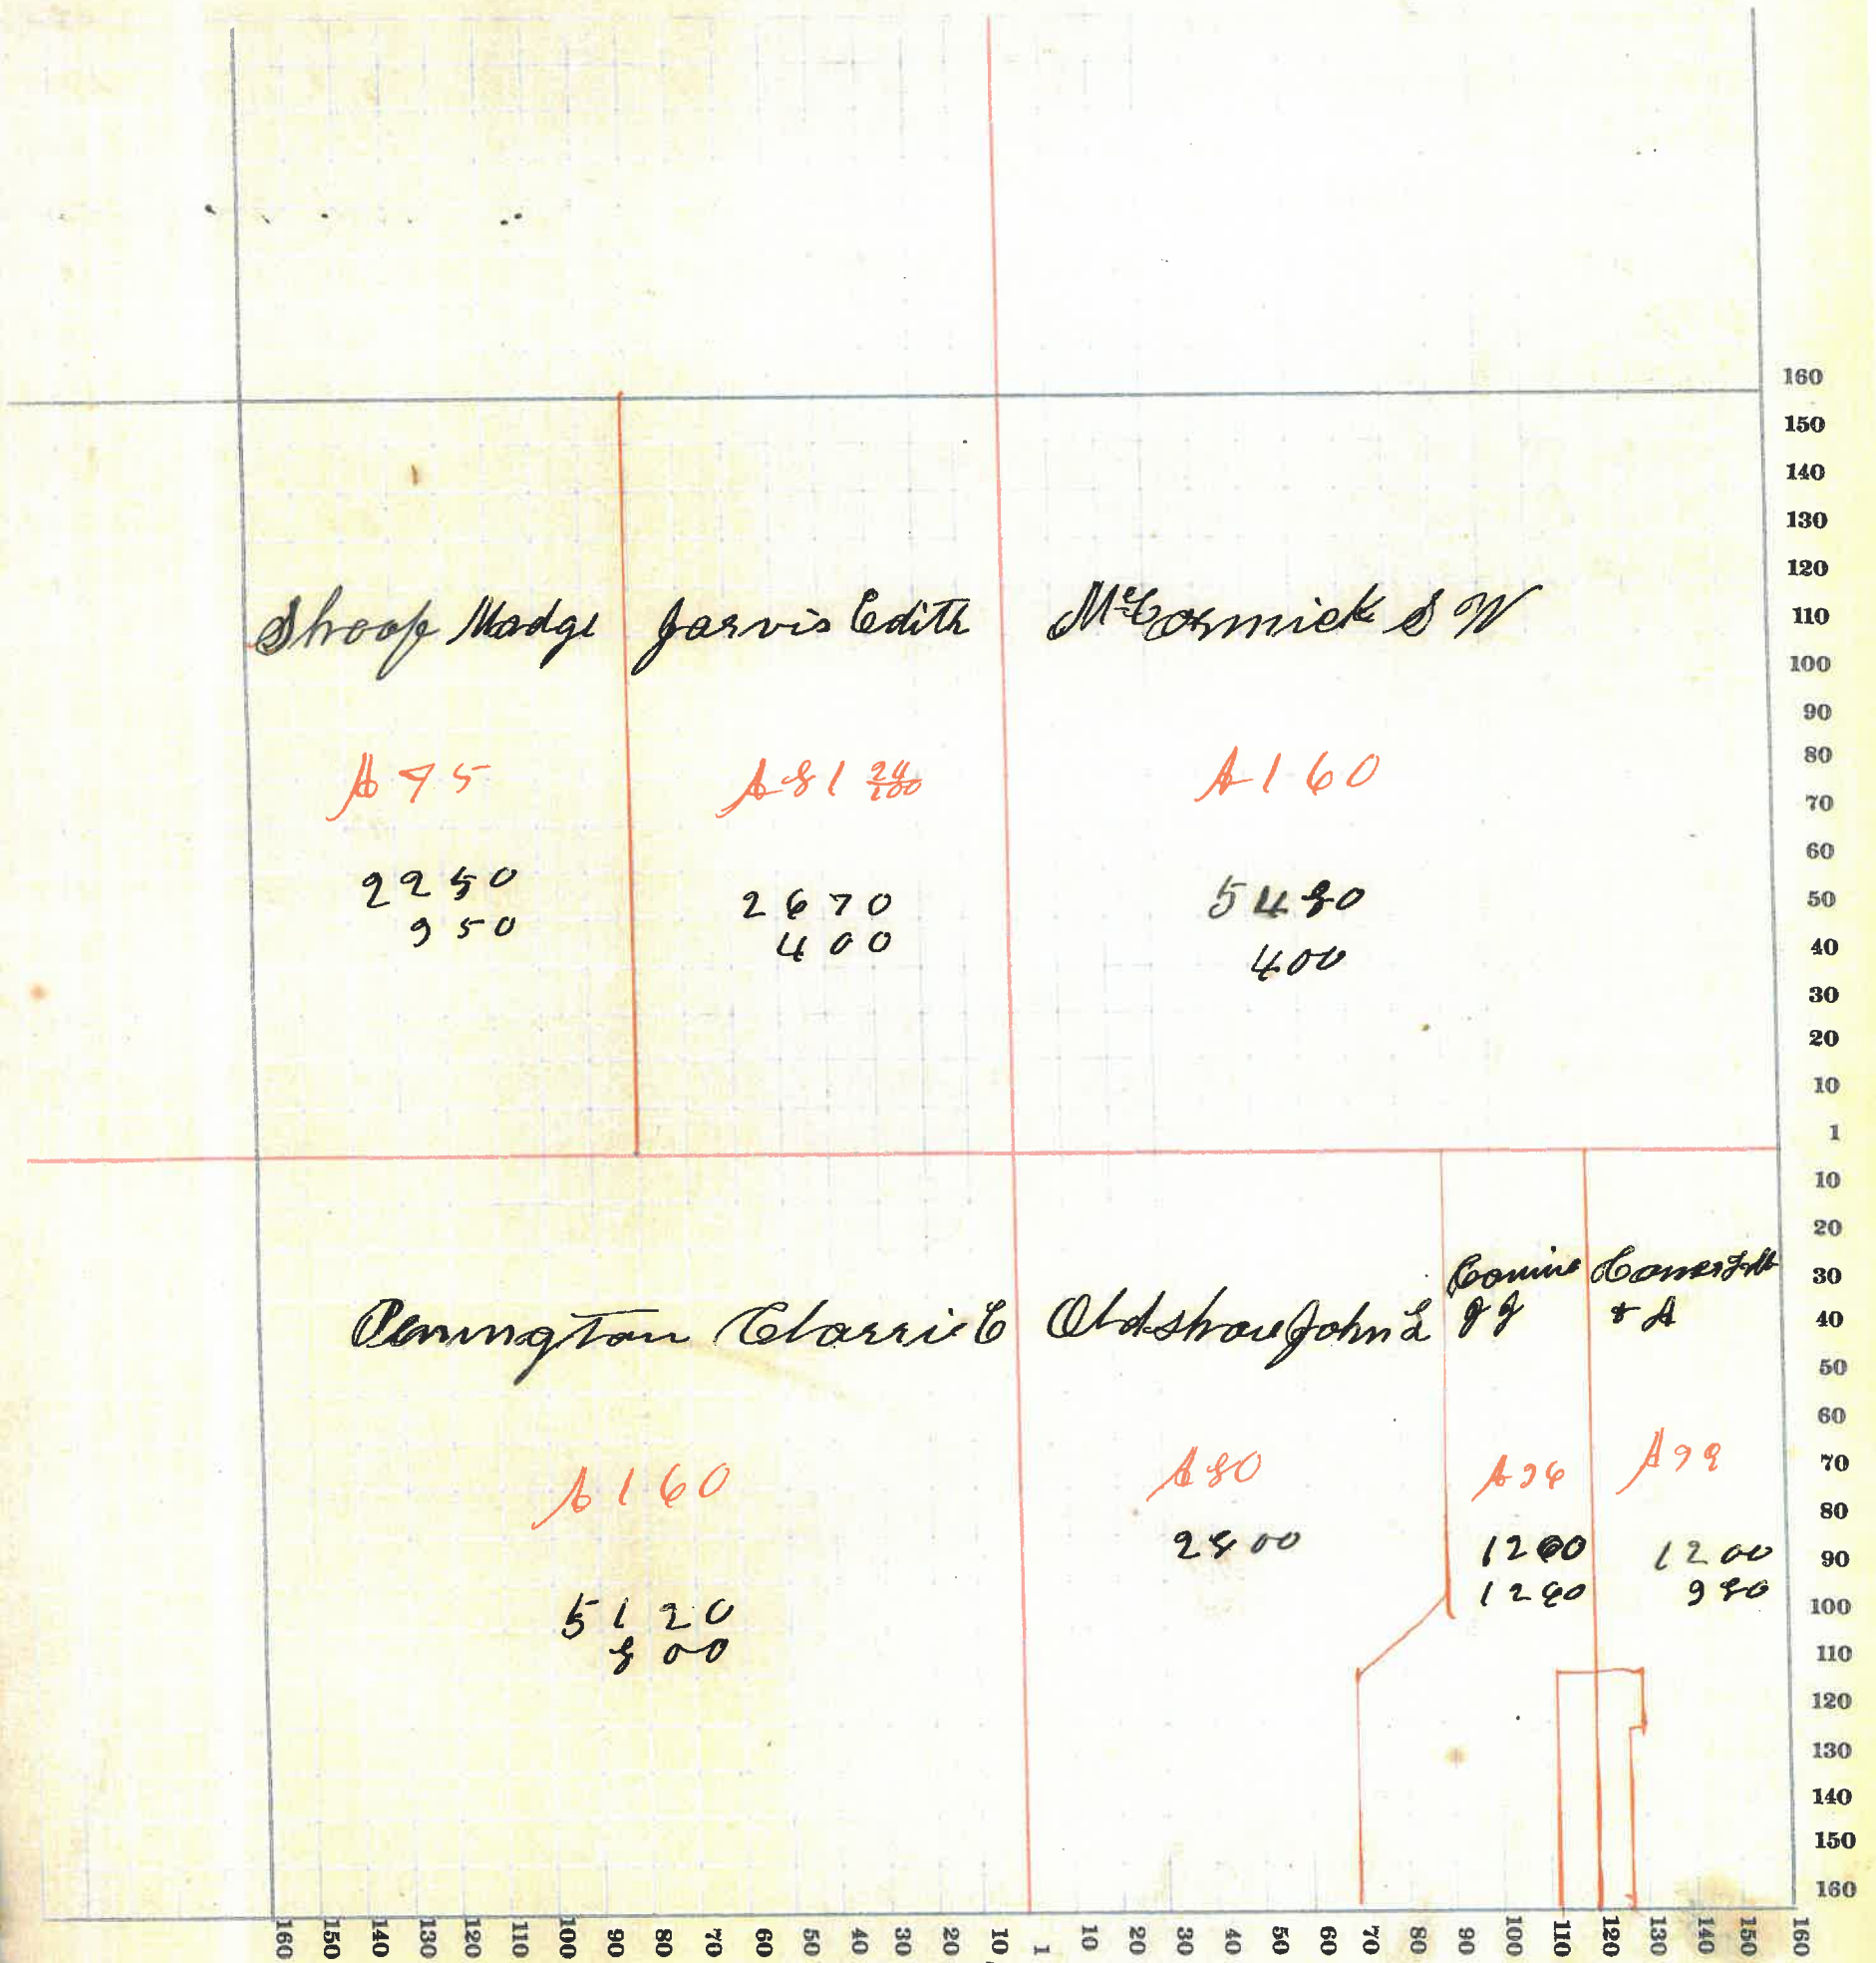 160
150
140
130
120
110
100
90
80
70
60
50
40
30
20
10
1
10
20
30
40
50
60
70
80
90
100
110
120
130
140
150
160
Shoop Madge
A 75
2250
950
Jarvis Edith
A 81 24/100
2670
400
McCormick S W
A 160
5480
400
Pennington Classie C
A 160
5120
800
Oldshoue John L
A 80
2800
J J
A 36
1260
1240
& A
1200
980
160 150 140 130 120 110 100 90 80 70 60 50 40 30 20 10 1 10 20 30 40 50 60 70 80 90 100 110 120 130 140 150 160